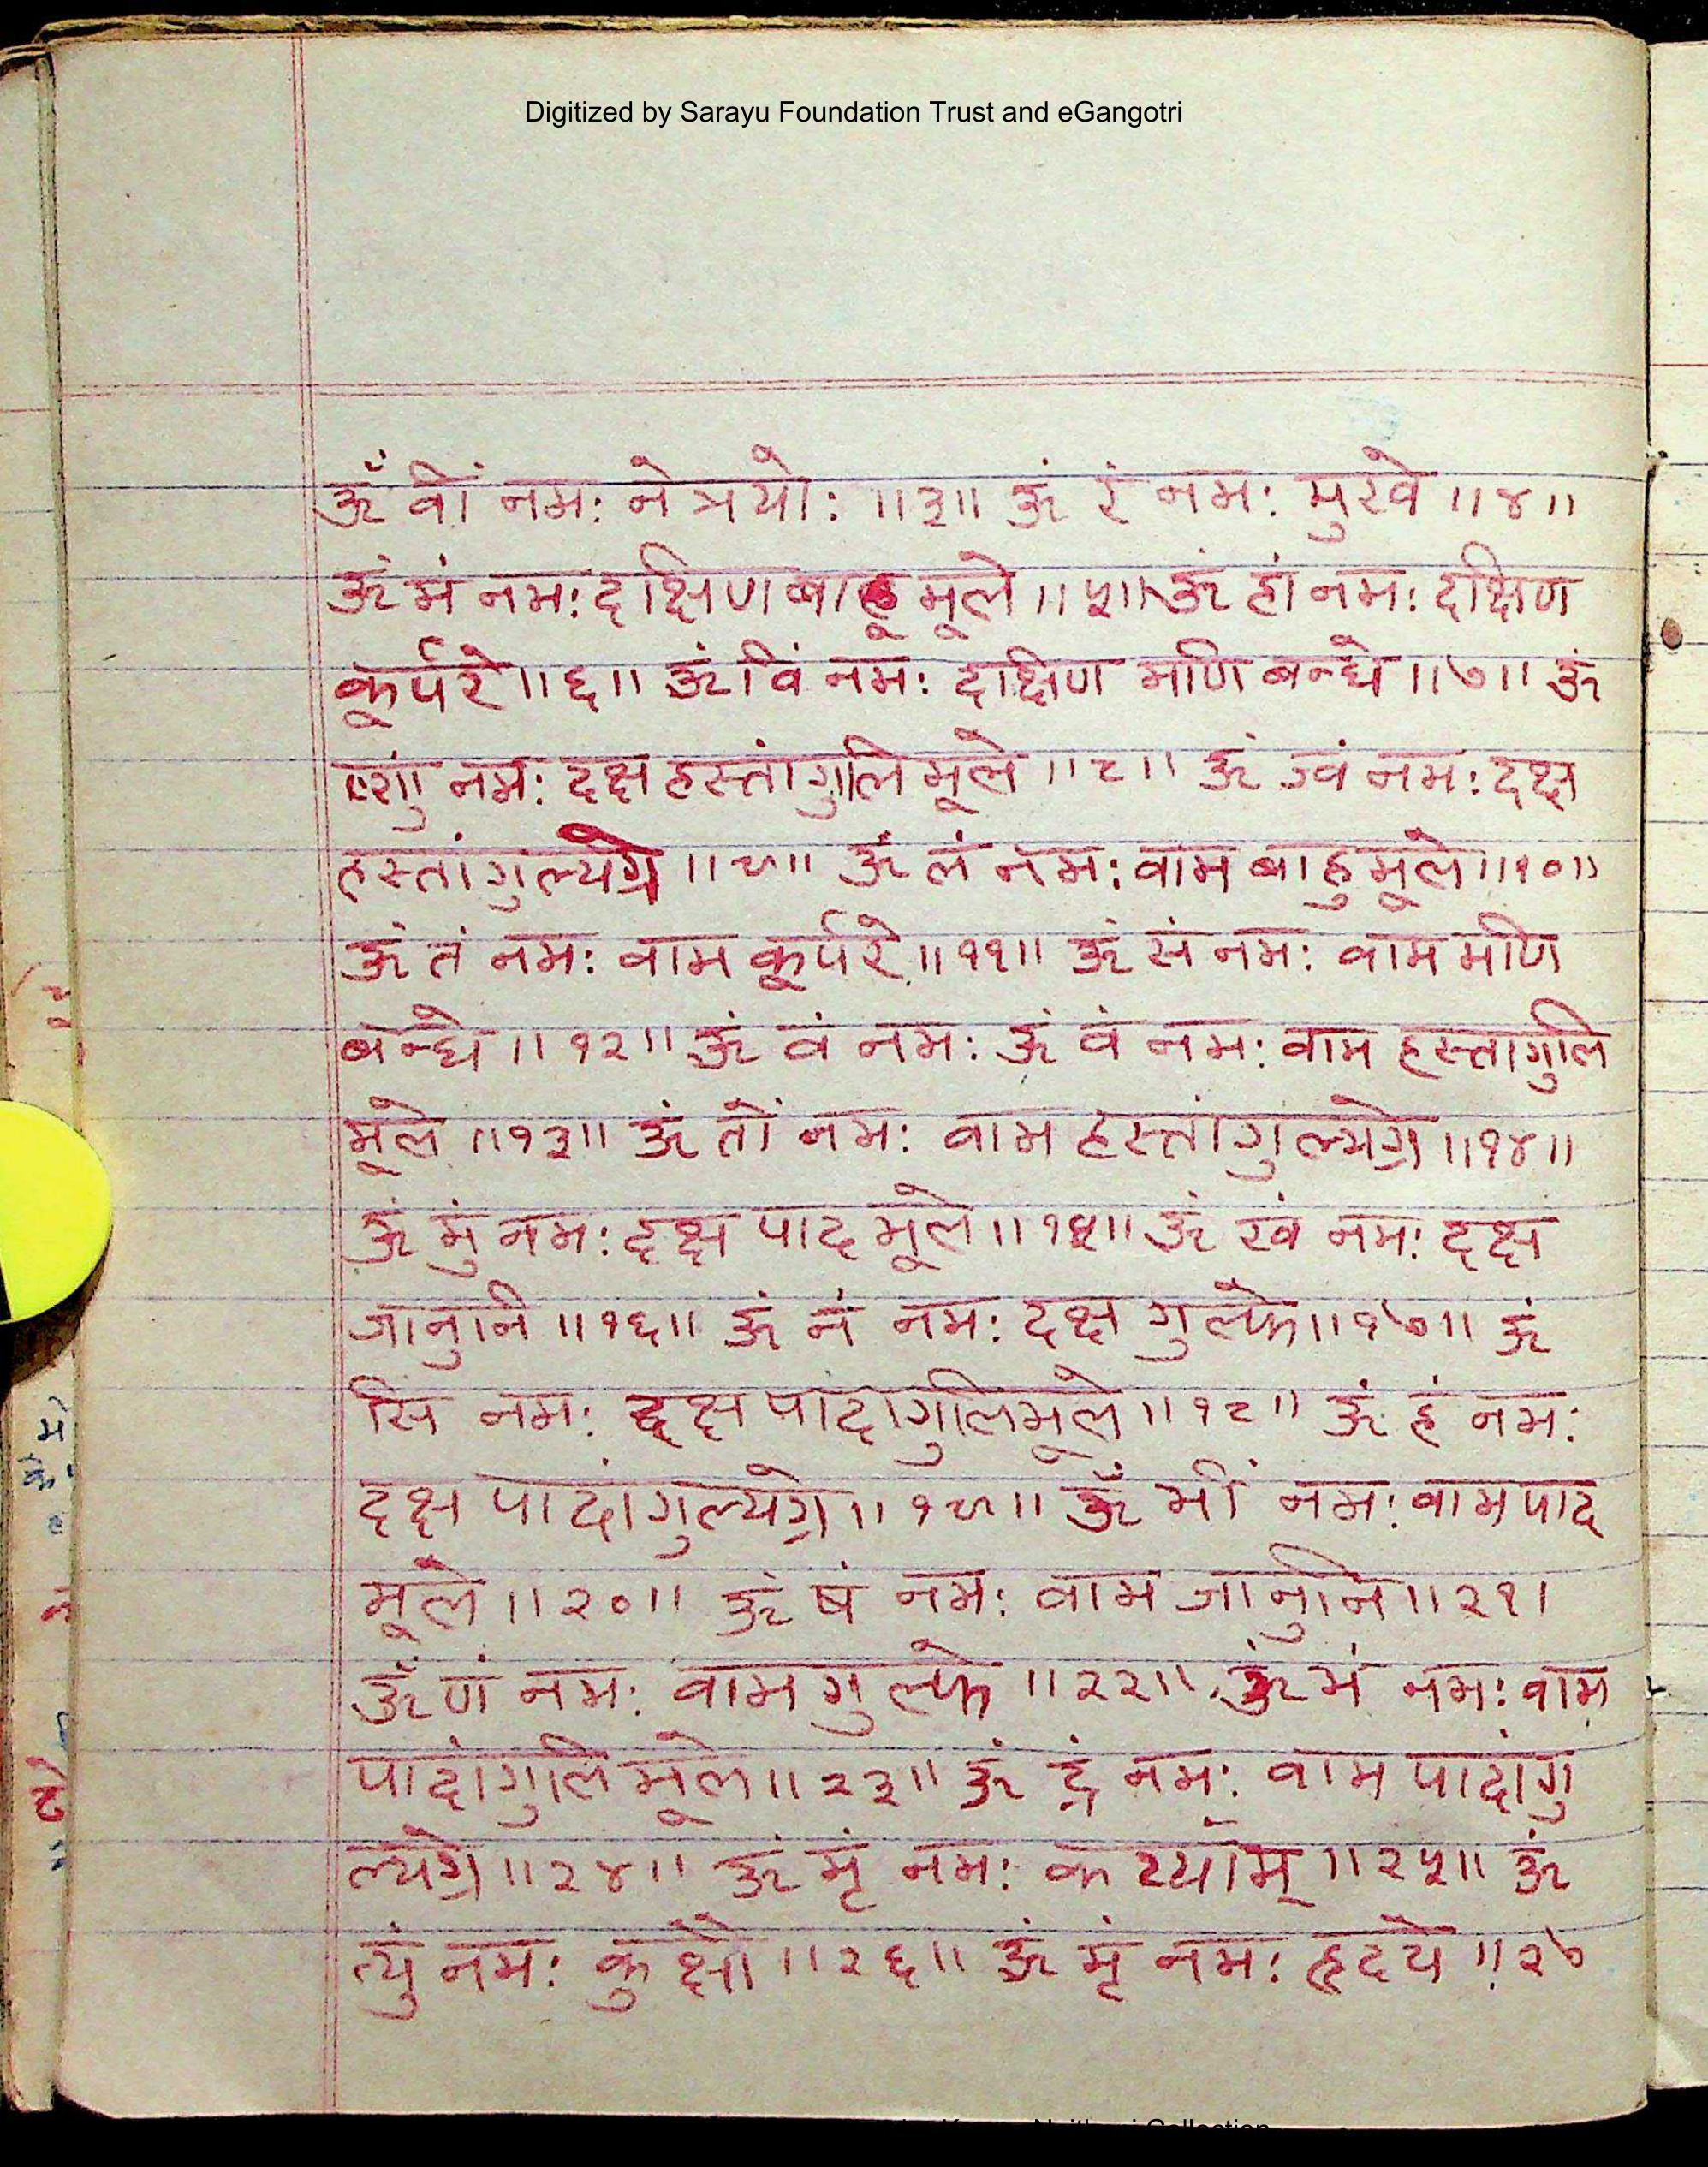 Digitized by Sarayu Foundation Trust and eGangotri
ॐ वीं नमः नेत्रयोः ॥३॥ ॐ रं नमः मुखे ॥४॥
ॐ मं नमः दक्षिण बाहू मूले ॥५॥ ॐ हां नमः दक्षिण
कूर्परे ॥६॥ ॐ विं नमः दक्षिण मणि बन्धे ॥७॥ ॐ
ष्णुं नमः दक्ष हस्तांगुलि मूले ॥८॥ ॐ ज्वं नमः दक्ष
हस्तांगुल्यग्रे ॥९॥ ॐ लं नमः वाम बाहु मूले ॥१०॥
ॐ तं नमः वाम कूर्परे ॥११॥ ॐ सं नमः वाम मणि
बन्धे ॥१२॥ ॐ वं नमः ॐ वं नमः वाम हस्तागुलि
मूले ॥१३॥ ॐ तों नमः वाम हस्तांगुल्यग्रे ॥१४॥
ॐ मुं नमः दक्ष पाद मूले ॥१५॥ ॐ खं नमः दक्ष
जानुनि ॥१६॥ ॐ नं नमः दक्ष गुल्फे ॥१७॥ ॐ
सिं नमः दक्ष पादांगुलिमूले ॥१८॥ ॐ हं नमः
दक्ष पादांगुल्यग्रे ॥१९॥ ॐ भीं नमः वाम पाद
मूले ॥२०॥ ॐ षं नमः वाम जानुनि ॥२१।
ॐ णं नमः वाम गुल्फे ॥२२॥ ॐ भं नमः वाम
पादांगुलि मूले ॥२३॥ ॐ द्रं नमः वाम पादांगु
ल्यग्रे ॥२४॥ ॐ मृं नमः कट्याम् ॥२५॥ ॐ
त्युं नमः कुक्षौ ॥२६॥ ॐ मृं नमः हृदये ॥२७